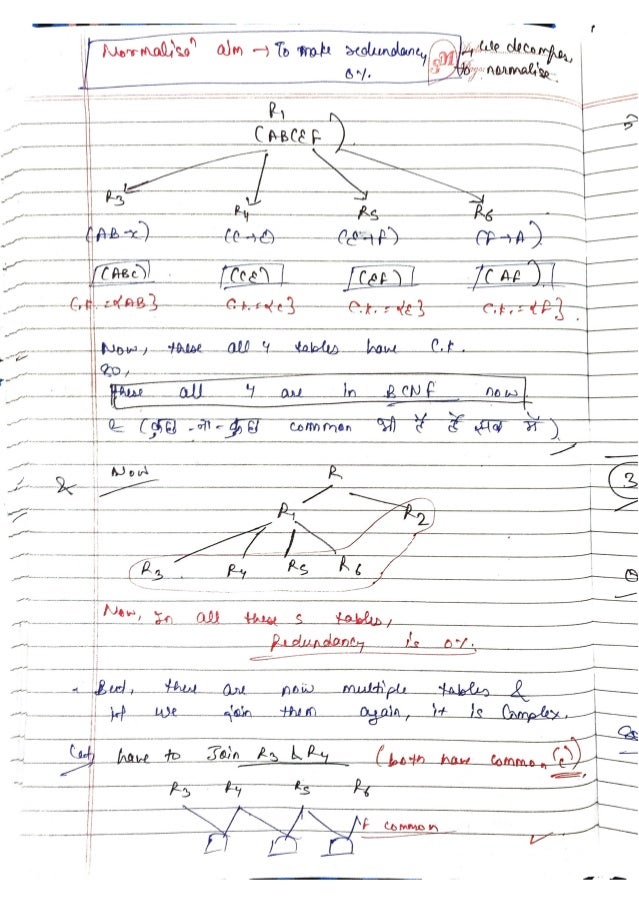 Normalisen aim → To make redundancy 0%.
↳ We decompose, to normalise.
R1
(ABCEF)
R3 R4 R5 R6
(AB→C) (C→E) (E→F) (F→A)
(ABC) (CE) (EF) (AF)
C.K. = {AB} C.K. = {C} C.K. = {E} C.K. = {F}.
Now, these all 4 tables have C.K.
So,
these all 4 are in BCNF now
& (कुछ-ना-कुछ common भी है सब में)
& Now
R
R1 R2
R3 R4 R5 R6
Now, In all these 5 tables,
Redundancy is 0%.
But, there are now multiple tables &
if we join them again, it is Complex.
have to Join R3 & R4 (both have common (C))
R3 R4 R5 R6
F common
3